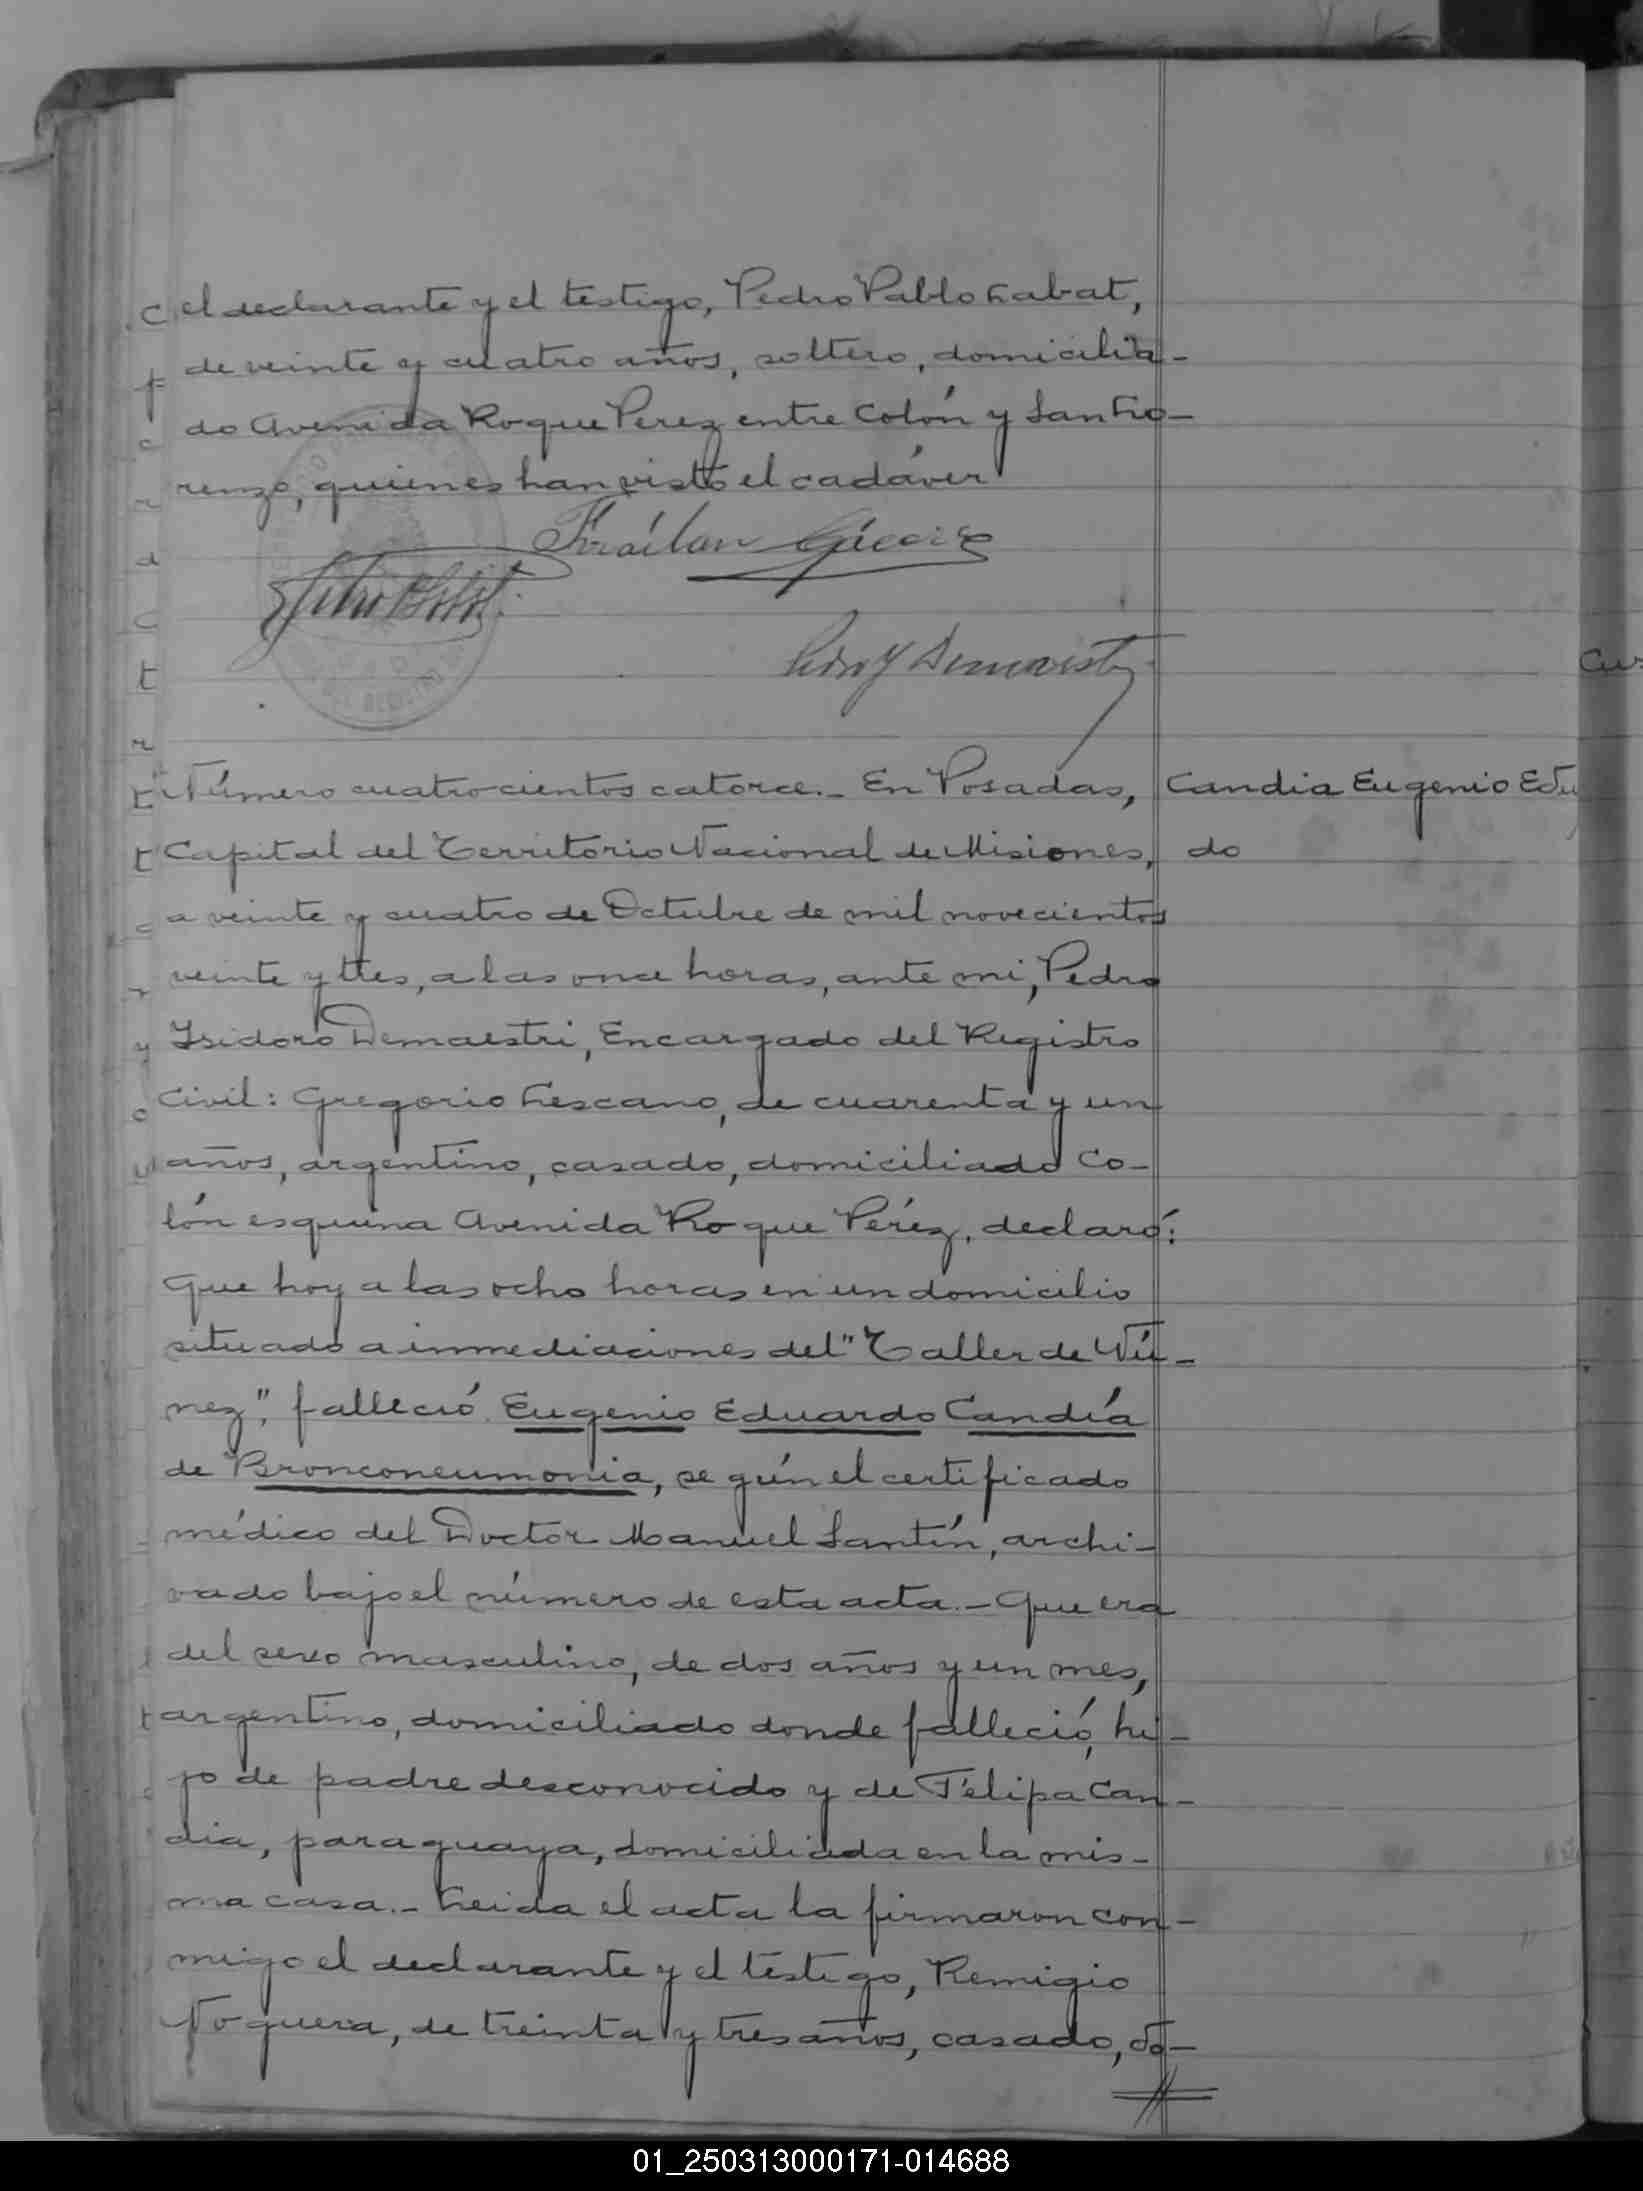 el declarante y el testigo, Pedro Pablo Labat,
de veinte y cuatro años, soltero, domicilia-
do Avenida Roque Perez entre Colón y San Lo-
renzo, quienes han visto el cadáver
Froilan
Número cuatrocientos catorce.- En Posadas,
Capital del Territorio Nacional de Misiones,
a veinte y cuatro de Octubre de mil novecientos
veinte y tres, a las once horas, ante mi, Pedro
Isidoro Demaestri, Encargado del Registro
Civil: Gregorio Lescano, de cuarenta y un
años, argentino, casado, domiciliado Co-
lón esquina Avenida Roque Pérez, declaró:
Que hoy a las ocho horas en un domicilio
situado a inmediaciones del "Taller de Nú-
nez", falleció Eugenio Eduardo Candía
de Bronconeumonia, según el certificado
médico del Doctor Manuel Santín, archi-
vado bajo el número de esta acta.- Que era
del sexo masculino, de dos años y un mes,
argentino, domiciliado donde falleció, hi-
jo de padre desconocido y de Felipa Can-
dia, paraguaya, domiciliada en la mis-
ma casa.- Leida el acta la firmaron con-
migo el declarante y el testigo, Remigio
Noguera, de treinta y tres años, casado, do-
Candia Eugenio Edu
do
01_250313000171-014688